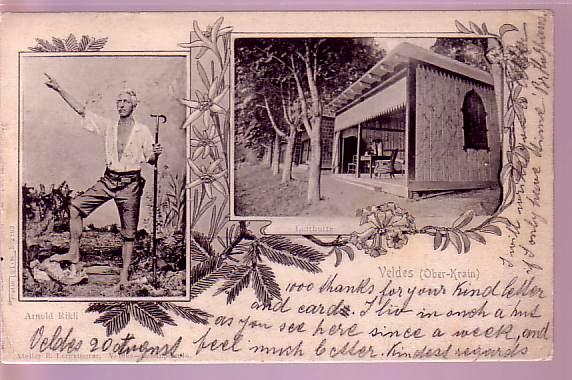 Arnold Rikli
Lufthütte
Veldes (Ober-Krain)
1000 thanks for your kind letter
and cards. I liv in such a hut
as you see here since a week, and
feel much better. Kindest regards
Veldes 20 august
I will write
if I only have time